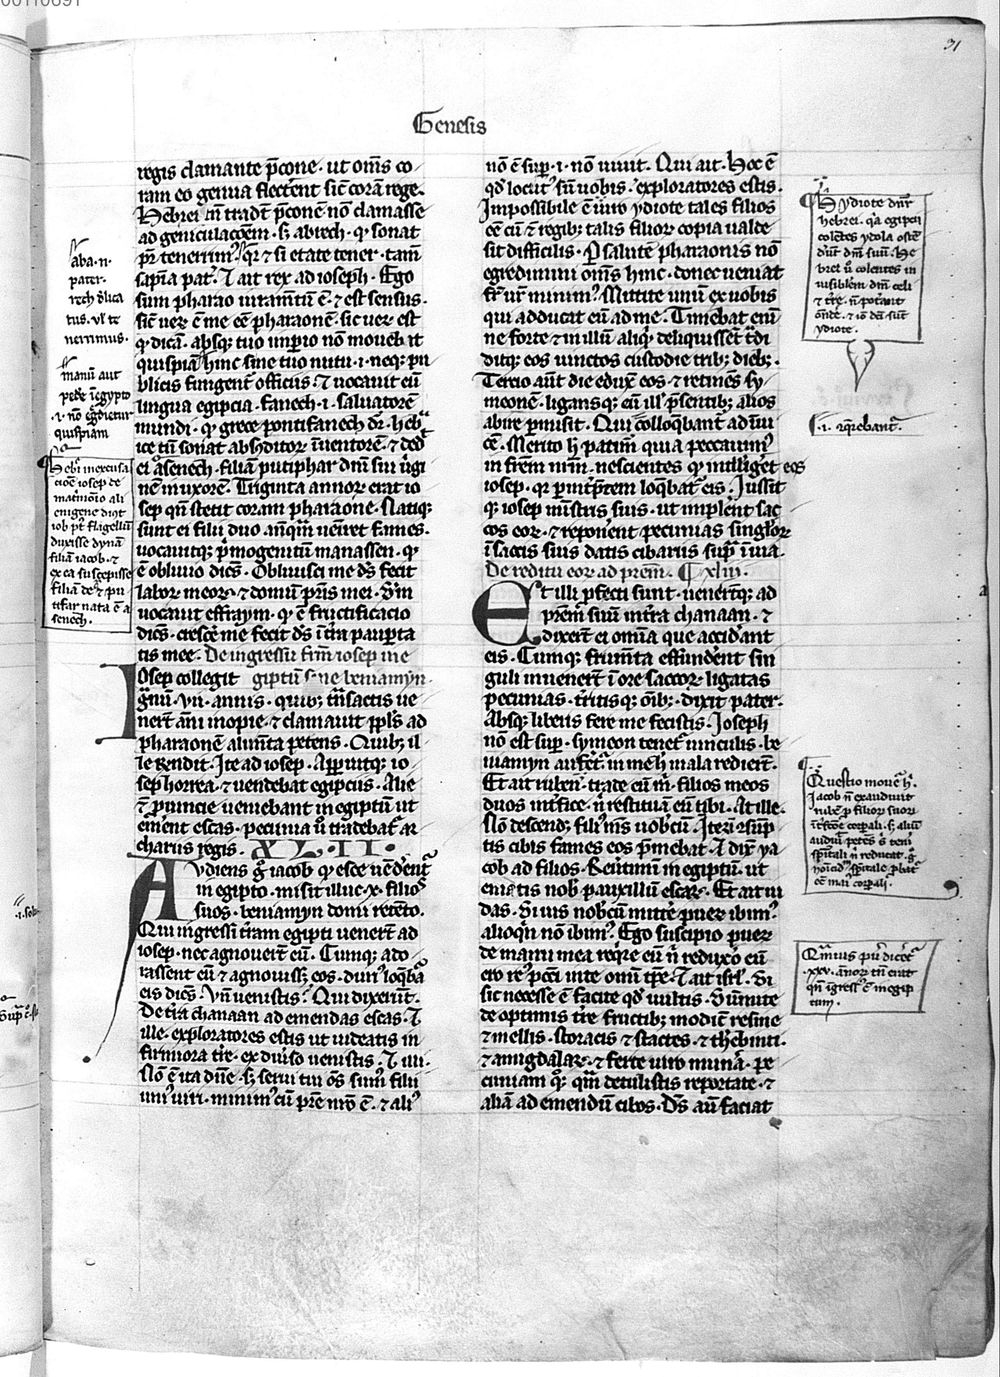 31
Genesis
regis clamante p̄cone · ut om̄s co
ram eo genua flecterent sic̄ corā rege.
Hebrei tn̄ tradt p̄conē nō clamasse
ad geniculacōem · s; abrech · qͥ sonat
pr̄ tenerrimꝰ qͣ ⁊ si etate tener · tam̄
sapīa pat᷑. Et ait rex ad ioseph · Ego
sum pharao iuramtū ē · ⁊ est sensus ·
sic̄ ueꝝ ē me eē pharaonē · sic ueꝝ est
qͩ dicā. absqꝫ tuo imperio nō mouebit
quispiā hinc sine tuo nutu · i · neqꝫ pu
blicis fungent᷑ officiis · ⁊ uocauit eū
lingua egipcia · fanech · i · saluatorē
mundi · qͩ grece pontifanech dr̄ · heb
ice tn̄ sonat absditoꝝ īuentorē · ⁊ ded
ei asenech · filiā putiphar dnī sui ūgi
nē in uxorē. Triginta annoꝝ erat io
seph qn̄ stetit coram pharaone · Natiqꝫ
sunt ei filii duo · anq̄m ueniret fames ·
uocauitqꝫ p̄mogenitū manassen · qͩ
ē obliuio dicēs. Obliuisci me ds̄ fecit
laboꝝ meoꝝ · ⁊ domū pr̄is mei · Sm̄
uocauit effraym · qͩ ē fructificacio
dicēs · cresce me fecit ds̄ ī tr̄a paupta
tis mee. De ingressu frm̄ iosep in e
Iosep collegit giptū sine beniamyn ·
g̊nū · vii · annis · quibꝫ tn̄sactis ue
nerūt āni inopie · ⁊ clamauit ppl̄s ad
pharaonē alimēta petens · Quibꝫ il
le rendit. Ite ad iosep · Apperuitqꝫ io
seph horrea · ⁊ uendebat egipciis · Alie
⁊ p̄uincie ueniebant in egiptū ut
emerent escas · pecunia ū tradebat᷑ ar
chariis regis. XLII.
Audiens g̊ iacob qͩ esce uēderent᷑
in egipto · misit illuc · x · filioꝰ
suos · beniamyn domi retēto.
Qui ingressi terram egipti uenerūt ad
iosep · nec agnouerūt eū. Cumqꝫ ado
rassent eū ⁊ agnouissꝫ eos · duriꝰ loqͣbā
eis dicēs · Vn̄ uenistis? Qui dixerunt.
De tr̄a chanaan ad emendas escas · Et
ille · exploratores estis ut uideatis in
firmiora tr̄e · ex diuiso uenistis · Et illi ·
Nō ē ita dn̄e · s; serui tui oēs sumꝰ filii
uniꝰ uiri · minimꝰ cū patre nr̄o ē · ⁊ aliꝰ
nō ē sup̄ · i · nō uiuit. Qui ait. Hoc ē
qd̄ locutꝰ sū uobis · exploratores estis ·
Impossibile ē uiro ydiote tales filios
eē cū ⁊ regibꝫ talis filioꝝ copia ualde
sit difficilis · P salutē pharaonis nō
egrediemini om̄s hinc · donec ueniat
fr̄ ur̄ minimꝰ. Mittite unū ex uobis
qui adducat eū ad me. Timebat enī
ne forte ⁊ in illū aliqͩ deliquissēt · tͣdi
ditqꝫ eos uinctos custodie tribꝫ diebꝫ.
Tercio aūt die eduxit eos · ⁊ retinēs sy
meonē · ligansqꝫ eū ill̄ p̄sentibꝫ · alios
abire p̄misit. Qui colloqͣbant᷑ ad īui
cē. Merito h̄ patimꝰ quia peccauimꝰ
in frēm nr̄m · nescientes qͩ intelligeret eos
iosep · qͣ p̄ int̄p̄tem loqͣbat᷑ eis. Iussit
qꝫ iosep ministris suis · ut implerent sac
cos eoꝝ · ⁊ reponerent pecunias singloꝝ
ī saccis suis datis cibariis sup̄ ī uia ·
De reditu eoꝝ ad prēm · C xliii.
Et illi p̄fecti sunt · uenerūtqꝫ ad
prēm suū in tr̄a chanaan · ⁊
dixerūt ei omīa que acciderant
eis. Cumqꝫ frum̄ta effunderent sin
guli inuenerūt ī ore saccoꝝ ligatas
pecunias · tr̄itisqꝫ oībꝫ · dixit pater ·
Absqꝫ liberis fere me fecistis. Ioseph
nō est sup̄ · symeon tenet᷑ uinculis · be
niamyn aufert᷑ · in me h̄ mala redierūt.
Et ait ruben · trade eū m̄ · filios meos
duos int̄fice · n̄ restituā eū tibi · At ille.
Nō descendꝫ filiꝰ mꝰs uobcū. Iterū ꝯsūp
tis cibis fames eos p̄mebat · Et dix̄ ia
cob ad filios · Reūtimī in egiptū · ut
ematis nob̄ pauxillū escaꝝ · Et ait iu
das · Si uis nobcū mittere puerū ibimꝰ ·
alioq̄n nō ibimꝰ. Ego suscipio puerū
de manu mea reqͥre eū n̄ reduxero eū
ero rēꝰ pcc̄i uite omī tp̄re · Et ait isrl̄ · Si
sic necesse ē facite qd̄ uultis · Sumite
de optimis tr̄e fructibꝫ modicū resine
⁊ mellis · storacis ⁊ stactes · ⁊ therebinti ·
⁊ amigdalaꝝ · ⁊ ferte uiro munera · pe
cuniam qͦꝫ qm̄ detulistis reportate · ⁊
aliā ad emendū cibos · Ds̄ aū faciat
aba · n ·
pater ·
rech d̄lica
tus · ul̄ te
nerrimus ·
manū aut
pedē ī egypto
· i · nō egrediet᷑
quispiam
Hebī inexcusa
cioē iosep de
matrimōio ali
enigene dicūt
iob p̄t flagellū
duxisse dynā
filiā iacob · ⁊
ex ea suscepisse
filiā de q̄ pu
tifar nata ē a
senech ·
Hydiote dn̄t᷑
hebrei · qͣ egipcii
colētes ydola ostē
dūt dm̄ suū · He
brei ū colentes in
uisiblem dm̄ celi
⁊ tr̄e · n̄ poterant
on̄de · ⁊ iō dc̄i sūt
ydiote ·
· i · ꝯq̄rebant᷑ ·
Questio mouet᷑ h̄ ·
Iacob n̄ exaudiuit
rubē p filioꝝ suoꝝ
īt̄fcōe corpali · s; aliū
audiū petēs s̄ pena
sp̄itali n̄ reducat · g̊
noīcid sp̄itale phat᷑
eē mai corpali ·
Qͣmuis pū dicet᷑
· xxv · annoꝝ tn̄ erat
qn̄ īgressꝰ ē in egip
tum ·